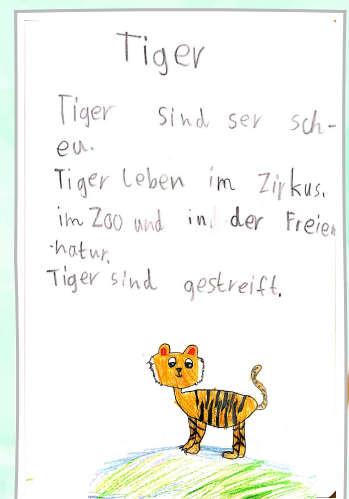 Tiger
Tiger sind ser sch-
eu.
Tiger leben im Zirkus.
im Zoo und in der Freien
natur.
Tiger sind gestreift.